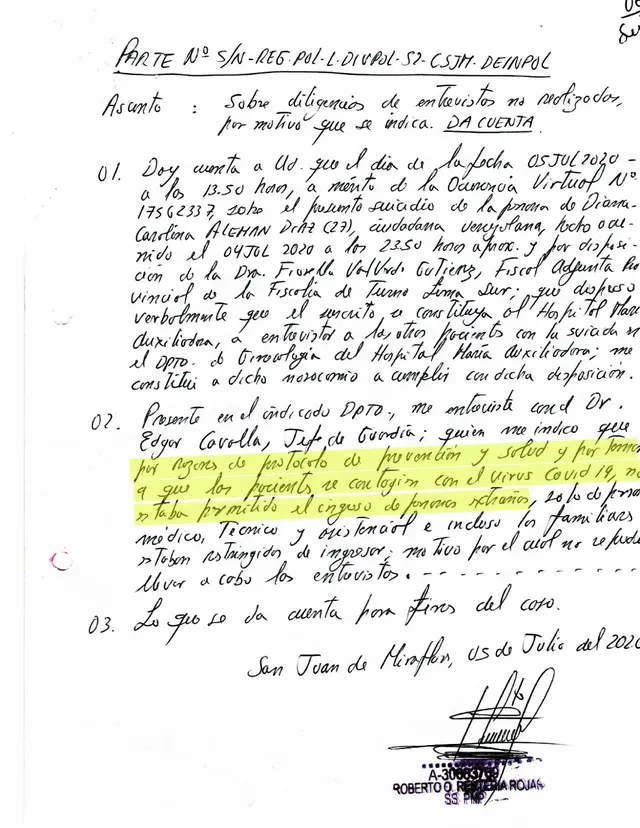 PARTE Nº S/N-REG.POL-L-DIVPOL-S2-CSJM-DEINPOL
Asunto : Sobre diligencias de entrevistas no realizadas,
por motivo que se indica. DA CUENTA.
01. Doy cuenta a Ud. que el dia de la fecha 05JUL2020 -
a las 13.50 horas, a mérito de la Ocurrencia Virtual Nº
17562337, sobre el presunto suicidio de la persona de Diana
Carolina ALEMAN DIAZ (27), ciudadana venezolana, hecho ocu-
rrido el 04JUL 2020 a las 2350 horas aprox. y por disposi-
ción de la Dra. Fiorella Valverde Gutierrez, Fiscal Adjunta Pro
vincial de la Fiscalia de Turno Lima Sur; que dispuso
verbalmente que el suscrito se constituya al Hospital Maria
Auxiliadora, a entrevistar a las otras pacients con la suicida en
el DPTO. de Ginecologia del Hospital Maria Auxiliadora; me
constitui a dicho nosocomio a cumplir con dicha disposición.
02. Presente en el indicado DPTO., me entreviste con el Dr.
Edgar Cavolla, Jefe de Guardia; quien me indico que
por razones de protocolo de prevención y salud y por temor
a que los pacients se contagien con el virus Covid 19, no
estaba permitido el ingreso de personas extrañas, solo de personal
médico, Técnico y asistencial e incluso los familiares
estaban restringidos de ingresar; motivo por el cual no se pudo
llevar a cabo las entrevistas. - - - - - - - - -
03. Lo que se da cuenta para fines del caso.
San Juan de Miraflores, 05 de Julio del 2020
ROBERTO O. ROJAS
SS PNP